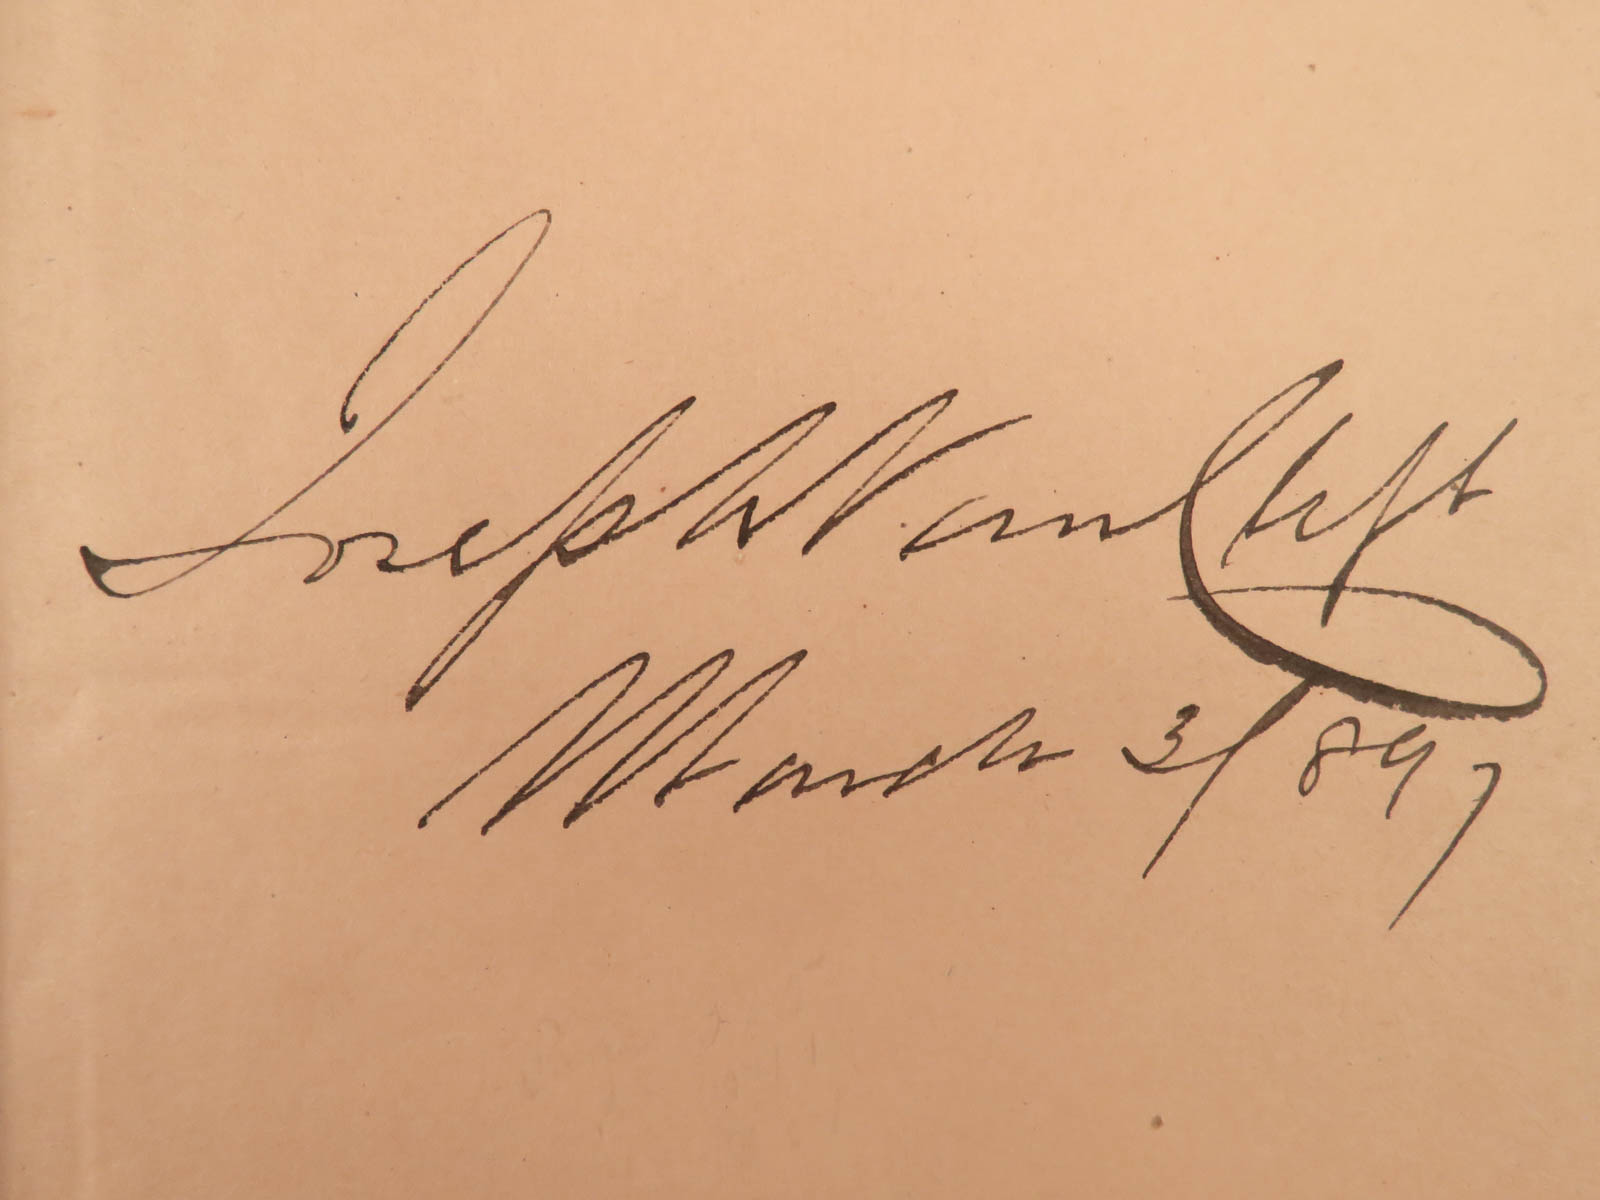 Joseph W Van Cleft
March 3/897